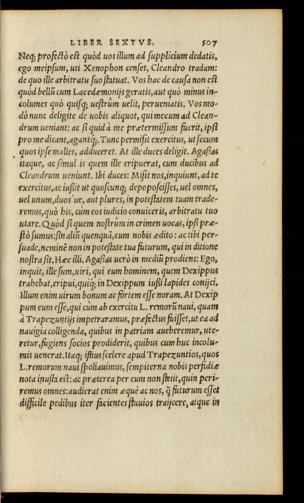 LIBER SEXTVS. 507
Neq; profectò est quòd uos illum ad supplicium dedatis,
ego meipsum, uti Xenophon censet, Cleandro tradam:
de quo ille arbitratu suo statuat. Vos hac de causa non est
quòd bellũ cum Lacedæmonijs geratis, aut quò minus in-
columes quò quisq; uestrûm uelit, perueniatis. Vos mo-
dò nunc deligite de uobis aliquot, qui mecum ad Clean-
drum ueniant: ac si quid à me prætermissum fuerit, ipsi
pro me dicant, agantq́;. Tunc permisit exercitus, ut secum
quos ipse mallet, adduceret. At ille duces deligit. Agasias
itaque, ac simul is quem ille eripuerat, cum ducibus ad
Cleandrum ueniunt. Ibi duces: Misit nos, inquiunt, ad te
exercitus, ac iussit ut quoscunq; depoposcisses, uel omnes,
uel unum, duos'ue, aut plures, in potestatem tuam trade-
remus, quò his, cum eos iudicio conuiceris, arbitratu tuo
utare. Quòd si quem nostrûm in crimen uocas, ipsi præ-
stò sumus: sin aliũ quenquã, cum nobis ædito: ac tibi per-
suade, neminẽ non in potestate tua futurum, qui in ditione
nostra sit. Hæc illi. Agasias uerò in mediũ prodiens: Ego,
inquit, ille sum, uiri, qui eum hominem, quem Dexippus
trahebat, eripui, quiq; in Dexippum iussi lapides conijci.
Illum enim uirum bonum ac fortem esse noram. At Dexip
pum eum esse, qui cum ab exercitu L. remorũ naui, quam
à Trapezuntijs impetraramus, præfectus fuisset, ut ea ad
nauigia colligenda, quibus in patriam aueheremur, ute-
retur, fugiens socios prodiderit, quibus cum huc incolu-
mis uenerat. Itaq; istius scelere apud Trapezuntios, quos
L. remorum naui spoliauimus, sempiterna nobis perfidiæ
nota inusta est: ac præterea per eum non stetit, quin peri-
remus omnes: audierat enim æquè ac nos, q̃ futurum esset
difficile pedibus iter facientes fluuios traijcere, atque in